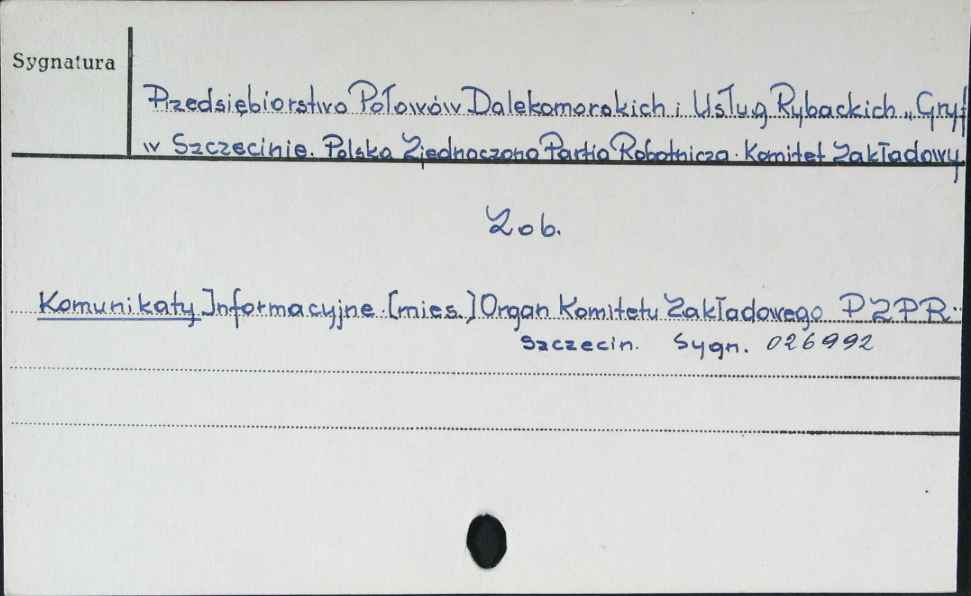 Sygnatura
Przedsiębiorstwo Połowów Dalekomorskich i Usług Rybackich „Gryf
w Szczecinie. Polska Zjednoczona Partia Robotnicza. Komitet Zakładowy
Zob.
Komunikaty Informacyjne. [mies.] Organ Komitetu Zakładowego PZPR.
Szczecin. Sygn. 026992